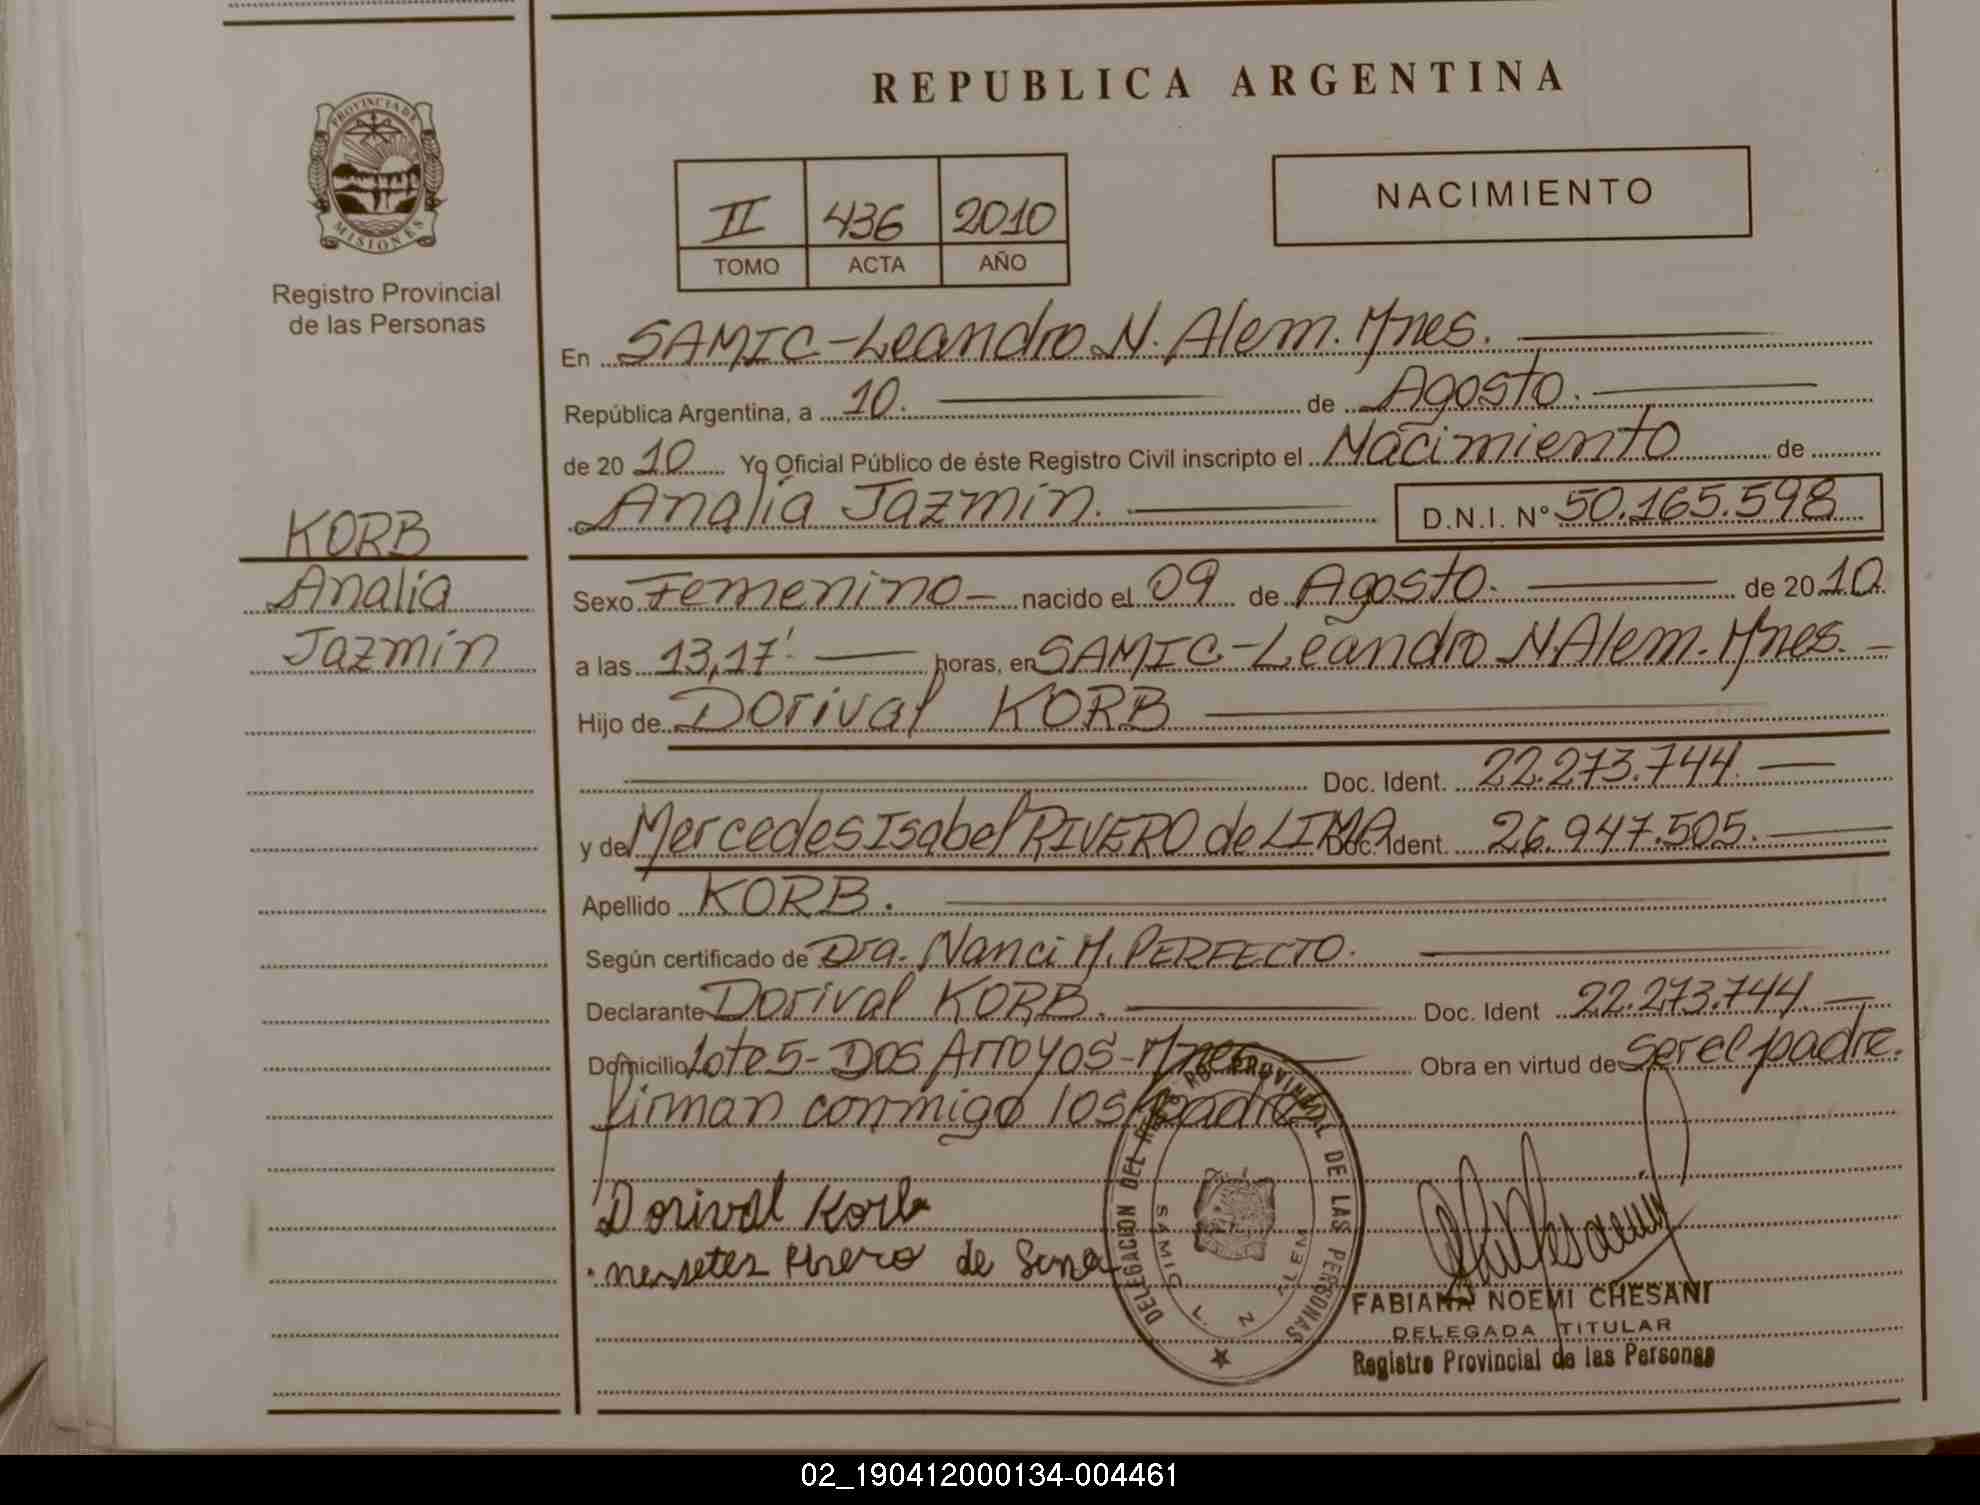 REPUBLICA ARGENTINA
PROVINCIA DE
MISIONES
Registro Provincial
de las Personas
NACIMIENTO
II 436 2010
TOMO ACTA AÑO
En SAMIC-Leandro N. Alem. Mnes.
República Argentina, a 10. de Agosto.
de 2010 Yo Oficial Público de éste Registro Civil inscripto el Nacimiento de
Analía Jazmín. D.N.I. N° 50.165.598
KORB
Analía
Jazmín
Sexo Femenino- nacido el 09 de Agosto. de 2010.
a las 13,17' horas, en SAMIC-Leandro N. Alem. Mnes.
Hijo de Dorival KORB
Doc. Ident. 22.273.744
y de Mercedes Isabel RIVERO de LIMA Doc. Ident. 26.947.505.
Apellido KORB.
Según certificado de Dra. Nanci M. PERFECTO.
Declarante Dorival KORB. Doc. Ident 22.273.744
Domicilio Lote 5- Dos Arroyos-Mnes Obra en virtud de ser el padre.
firman conmigo los padres
Dorival Korb
de
DELEGACION DEL REGISTRO PROVINCIAL DE LAS PERSONAS
SAMIC L. N. ALEM
FABIANA NOEMI CHESANI
DELEGADA TITULAR
Registro Provincial de las Personas
02_190412000134-004461